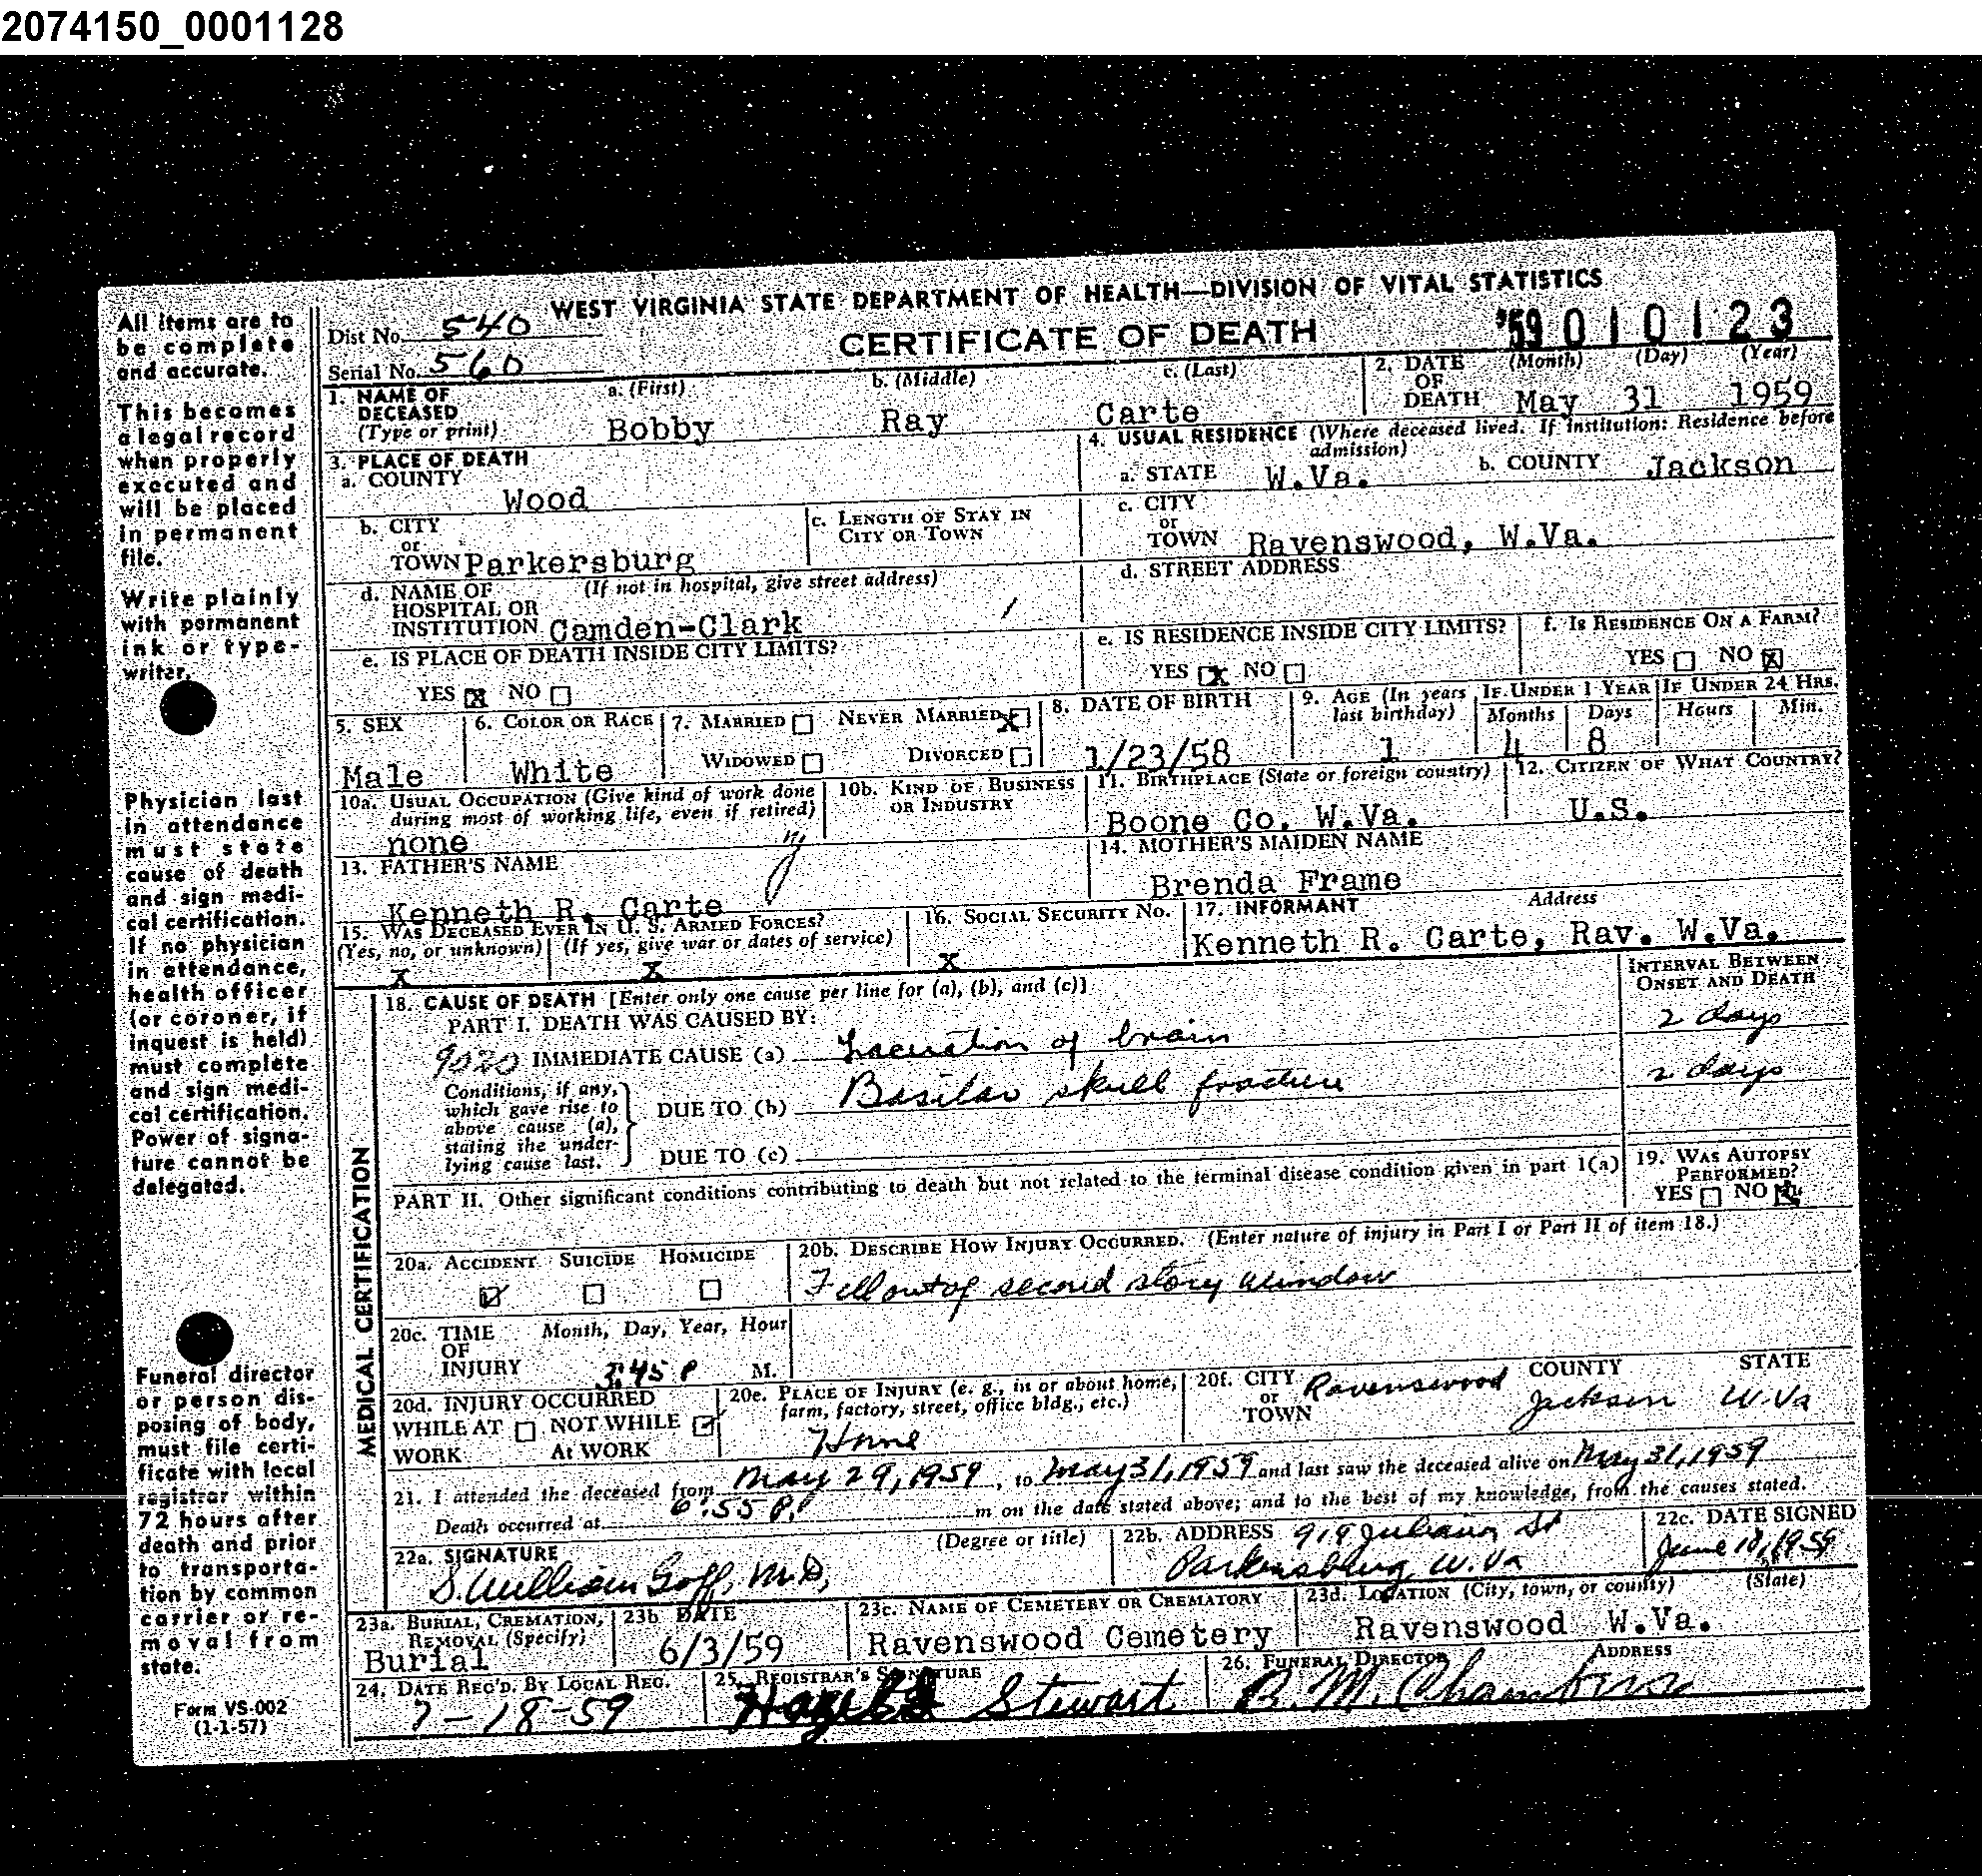 2074150_0001128
WEST VIRGINIA STATE DEPARTMENT OF HEALTH—DIVISION OF VITAL STATISTICS
CERTIFICATE OF DEATH
'59 010123
Dist No. 540
Serial No. 560
1. NAME OF DECEASED (Type or print)
a. (First) Bobby
b. (Middle) Ray
c. (Last) Carte
2. DATE OF DEATH (Month) (Day) (Year)
May 31 1959
3. PLACE OF DEATH
a. COUNTY
Wood
4. USUAL RESIDENCE (Where deceased lived. If institution: Residence before admission)
a. STATE W.Va. b. COUNTY Jackson
b. CITY or TOWN Parkersburg
c. LENGTH OF STAY IN CITY OR TOWN
c. CITY or TOWN Ravenswood, W.Va.
d. NAME OF HOSPITAL OR INSTITUTION (If not in hospital, give street address)
Camden-Clark
d. STREET ADDRESS
e. IS PLACE OF DEATH INSIDE CITY LIMITS?
YES x NO
e. IS RESIDENCE INSIDE CITY LIMITS?
YES x NO
f. IS RESIDENCE ON A FARM?
YES NO x
5. SEX
Male
6. COLOR OR RACE
White
7. MARRIED NEVER MARRIED x
WIDOWED DIVORCED
8. DATE OF BIRTH
1/23/58
9. AGE (In years last birthday)
1
IF UNDER 1 YEAR
Months Days
4 8
IF UNDER 24 HRS.
Hours Min.
10a. USUAL OCCUPATION (Give kind of work done during most of working life, even if retired)
none
10b. KIND OF BUSINESS OR INDUSTRY
11. BIRTHPLACE (State or foreign country)
Boone Co. W.Va.
12. CITIZEN OF WHAT COUNTRY?
U.S.
13. FATHER'S NAME
Kenneth R. Carte
14. MOTHER'S MAIDEN NAME
Brenda Frame
15. WAS DECEASED EVER IN U. S. ARMED FORCES?
(Yes, no, or unknown) (If yes, give war or dates of service)
x x
16. SOCIAL SECURITY NO.
x
17. INFORMANT Address
Kenneth R. Carte, Rav. W.Va.
MEDICAL CERTIFICATION
18. CAUSE OF DEATH [Enter only one cause per line for (a), (b), and (c)]
INTERVAL BETWEEN ONSET AND DEATH
PART I. DEATH WAS CAUSED BY:
9020 IMMEDIATE CAUSE (a) Laceration of brain 2 days
Conditions, if any, which gave rise to above cause (a), stating the underlying cause last.
DUE TO (b) Basilar skull fracture 2 days
DUE TO (c)
PART II. Other significant conditions contributing to death but not related to the terminal disease condition given in part I(a)
19. WAS AUTOPSY PERFORMED?
YES NO x
20a. ACCIDENT SUICIDE HOMICIDE
20b. DESCRIBE HOW INJURY OCCURRED. (Enter nature of injury in Part I or Part II of item 18.)
Fell out of second story window
20c. TIME OF INJURY Month, Day, Year, Hour
3:45 P M.
20d. INJURY OCCURRED
WHILE AT WORK NOT WHILE AT WORK
20e. PLACE OF INJURY (e. g., in or about home, farm, factory, street, office bldg., etc.)
Home
20f. CITY or TOWN COUNTY STATE
Ravenswood Jackson W.Va
21. I attended the deceased from May 29, 1959, to May 31, 1959 and last saw the deceased alive on May 31, 1959
Death occurred at 6:55 P. m on the date stated above; and to the best of my knowledge, from the causes stated.
22a. SIGNATURE (Degree or title)
S. William Goff, M.D.
22b. ADDRESS 919 Juliana St
Parkersburg, W.Va
22c. DATE SIGNED
June 1959
23a. BURIAL, CREMATION, REMOVAL (Specify)
Burial
23b. DATE
6/3/59
23c. NAME OF CEMETERY OR CREMATORY
Ravenswood Cemetery
23d. LOCATION (City, town, or county) (State)
Ravenswood W.Va.
24. DATE REC'D. BY LOCAL REG.
7-18-59
25. REGISTRAR'S SIGNATURE
Stewart
26. FUNERAL DIRECTOR ADDRESS
B. M. Chambers
All items are to be complete and accurate.
This becomes a legal record when properly executed and will be placed in permanent file.
Write plainly with permanent ink or typewriter.
Physician last in attendance must state cause of death and sign medical certification. If no physician in attendance, health officer (or coroner, if inquest is held) must complete and sign medical certification. Power of signature cannot be delegated.
Funeral director or person disposing of body, must file certificate with local registrar within 72 hours after death and prior to transportation by common carrier or removal from state.
Form VS-002
(1-1-57)